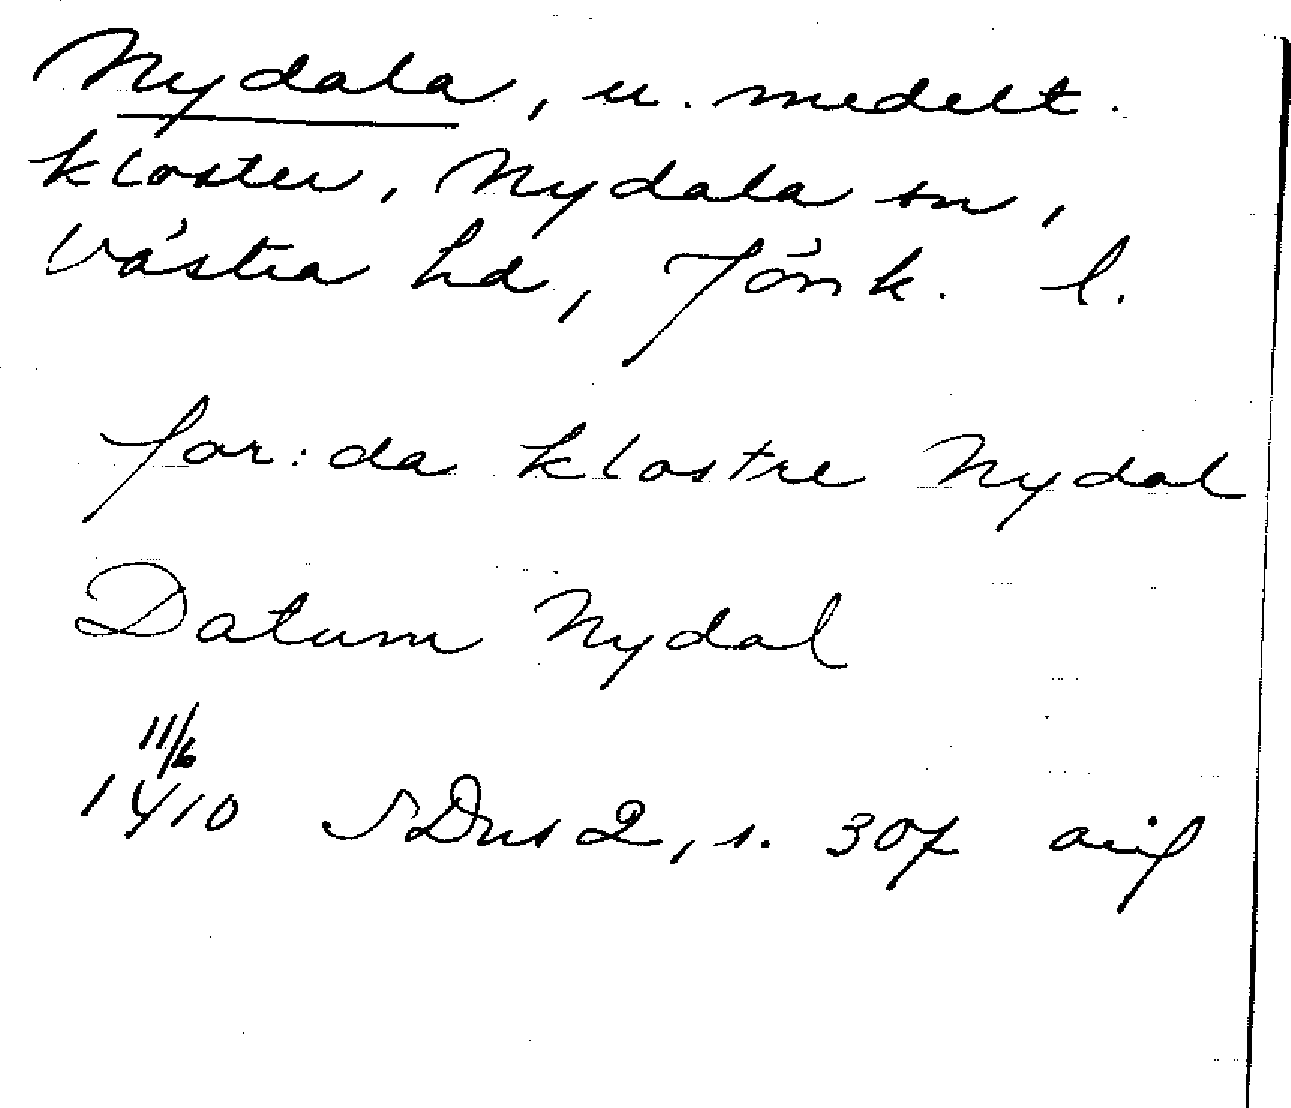 Nydala, u. medelt.
kloster, Nydala sn,
Västra hd, Jönk. l.
for:da klostre Nydal
Datum Nydal
11/6
1410 SDns 2, s. 307 avs